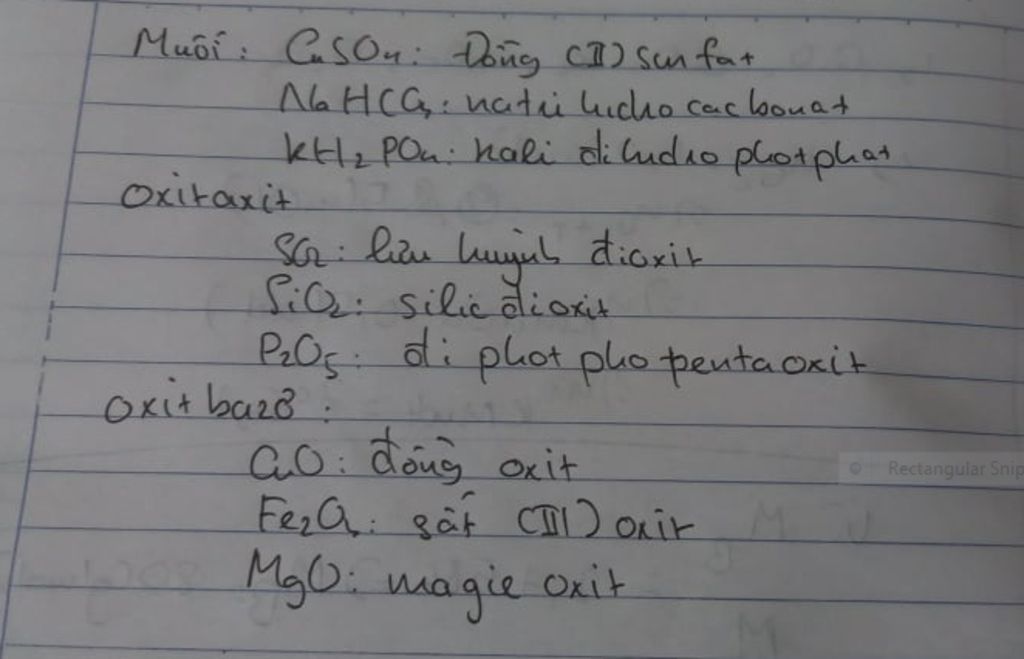 Muối: CuSO4: Đồng (II) sunfat
NaHCO3: natri hidro cacbonat
KH2PO4: kali đihidro photphat
Oxit axit
SO2: lưu huỳnh đioxit
SiO2: silic đioxit
P2O5: đi photpho pentaoxit
Oxit bazơ:
CuO: đồng oxit
Rectangular Snip
Fe2O3: sắt (III) oxit
MgO: magie oxit